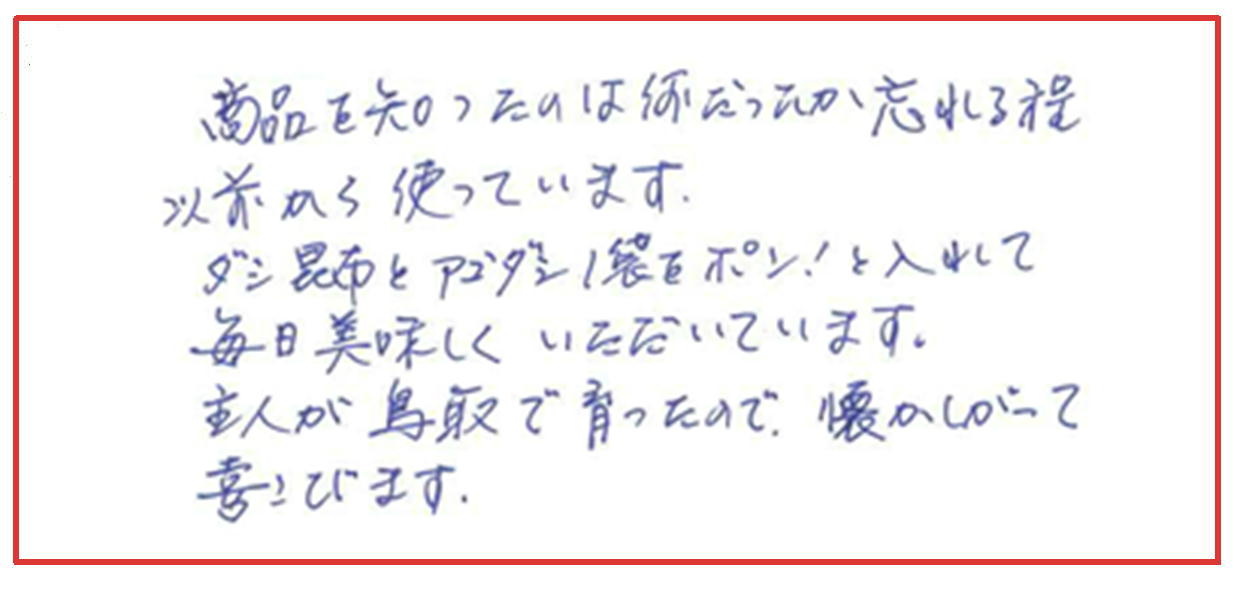 商品を知ったのは何だったか忘れる程
以前から使っています.
ダシ昆布とアゴダシ1袋をポン!と入れして
毎日美味しくいただいています。
主人が鳥取で育ったので、懐かしがって
喜こびます.